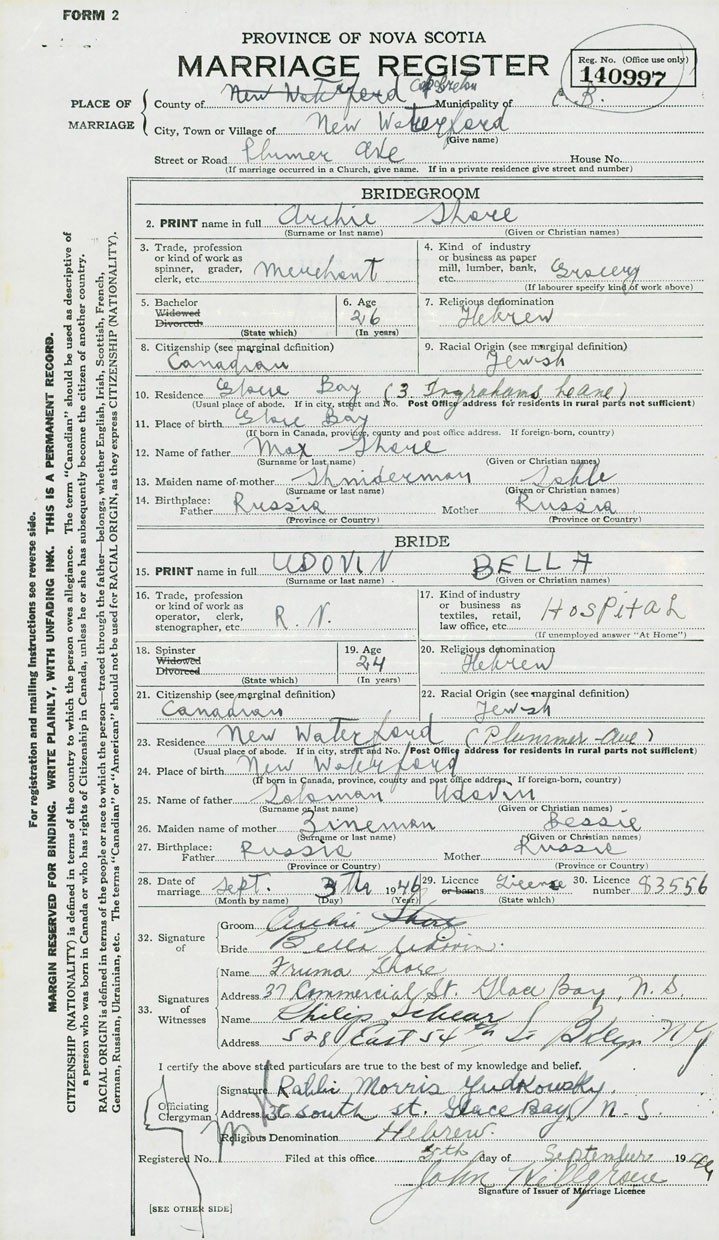 FORM 2
PROVINCE OF NOVA SCOTIA
MARRIAGE REGISTER
Reg. No. (Office use only)
140997
PLACE OF MARRIAGE
County of New Waterford Cape Breton Municipality of C. B.
City, Town or Village of New Waterford
(Give name)
Street or Road Plumer Ave House No.
(If marriage occurred in a Church, give name. If in a private residence give street and number)
BRIDEGROOM
2. PRINT name in full Archie Shore
(Surname or last name) (Given or Christian names)
3. Trade, profession or kind of work as spinner, grader, clerk, etc. Merchant
4. Kind of industry or business as paper mill, lumber, bank, etc. Grocery
(If labourer specify kind of work above)
5. Bachelor Widowed Divorced (State which)
6. Age 26 (In years)
7. Religious denomination Hebrew
8. Citizenship (see marginal definition) Canadian
9. Racial Origin (see marginal definition) Jewish
10. Residence Glace Bay (3. Ingrahams Leane)
(Usual place of abode. If in city, street and No. Post Office address for residents in rural parts not sufficient)
11. Place of birth Glace Bay
(If born in Canada, province, county and post office address. If foreign-born, country)
12. Name of father Max Shore
(Surname or last name) (Given or Christian names)
13. Maiden name of mother Shniderman
(Surname or last name) (Given or Christian names)
14. Birthplace: Father Russia Mother Russia
(Province or Country) (Province or Country)
BRIDE
15. PRINT name in full UDOVIN BELLA
(Surname or last name) (Given or Christian names)
16. Trade, profession or kind of work as operator, clerk, stenographer, etc. R. N.
17. Kind of industry or business as textiles, retail, law office, etc. HOSPITAL
(If unemployed answer "At Home")
18. Spinster Widowed Divorced (State which)
19. Age 24 (In years)
20. Religious denomination Hebrew
21. Citizenship (see marginal definition) Canadian
22. Racial Origin (see marginal definition) Jewish
23. Residence New Waterford (Plummer Ave)
(Usual place of abode. If in city, street and No. Post Office address for residents in rural parts not sufficient)
24. Place of birth New Waterford
(If born in Canada, province, county and post office address. If foreign-born, country)
25. Name of father Soloman Udovin
(Surname or last name) (Given or Christian names)
26. Maiden name of mother Zineman Bessie
(Surname or last name) (Given or Christian names)
27. Birthplace: Father Russia Mother Russia
(Province or Country) (Province or Country)
28. Date of marriage Sept. 3th 1946
(Month by name) (Day) (Year)
29. Licence or banns License (State which)
30. Licence number 83556
32. Signature of
Groom Archie Shore
Bride Bella Udovin.
33. Signatures of Witnesses
Name Fruma Shore
Address 37 Commercial St. Glace Bay, N. S.
Name Philip
Address 528 East 54th St N Y
I certify the above stated particulars are true to the best of my knowledge and belief.
Officiating Clergyman
Signature Rabbi Morris Yudkowsky
Address 36 South st. Glace Bay N. S.
Religious Denomination Hebrew.
Registered No. Filed at this office 5th day of September 19
John Hillgrove
Signature of Issuer of Marriage Licence
[SEE OTHER SIDE]
For registration and mailing instructions see reverse side.
MARGIN RESERVED FOR BINDING. WRITE PLAINLY, WITH UNFADING INK. THIS IS A PERMANENT RECORD.
CITIZENSHIP (NATIONALITY) is defined in terms of the country to which the person owes allegiance. The term "Canadian" should be used as descriptive of
a person who was born in Canada or who has rights of Citizenship in Canada, unless he or she has subsequently become the citizen of another country.
RACIAL ORIGIN is defined in terms of the people or race to which the person—traced through the father—belongs, whether English, Irish, Scottish, French,
German, Russian, Ukrainian, etc. The terms "Canadian" or "American" should not be used for RACIAL ORIGIN, as they express CITIZENSHIP (NATIONALITY).